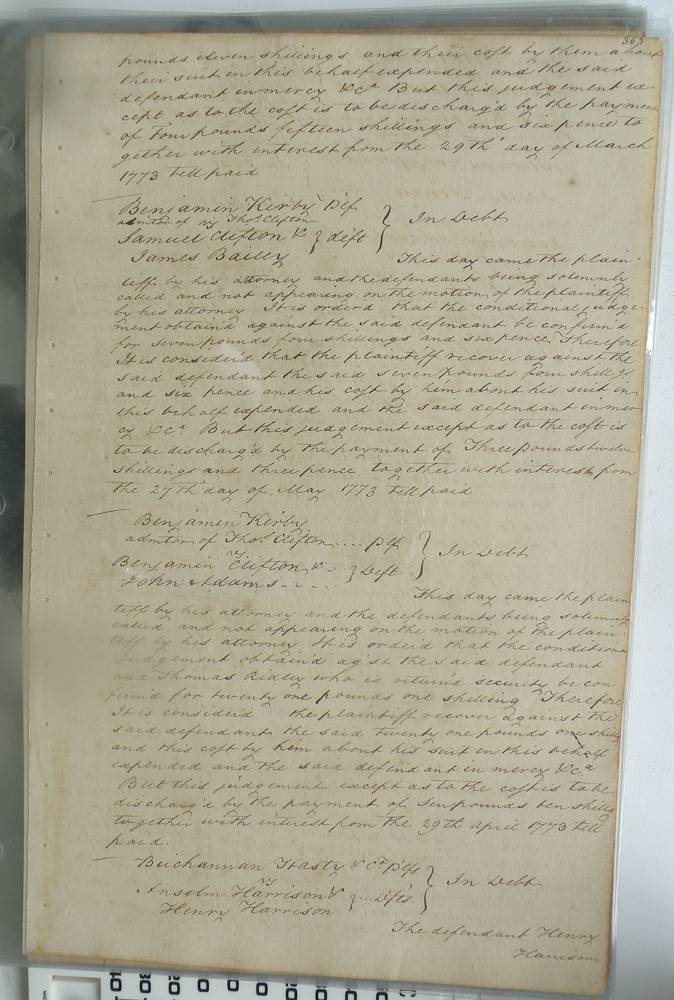 363
pounds eleven shillings and their cost by them about
their suit in this behalf expended and the said
defendant in mercy &ca But this judgement ex-
cept as to the cost is to be discharg'd by the payment
of Four pounds fifteen shillings and six pence to
gether with interest from the 29th day of March
1773 till paid
Benjamin Kirby Plf
admtor of vs Thos. Clifton
Samuel Clifton & } deft } In Debt
James Bailey
This day came the plain-
tiff by his attorney and the defendants being solemnly
called and not appearing on the motion of the plaintiff
by his attorney It is order'd that the conditional judge-
ment obtain'd against the said defendant be confirm'd
for seven pounds four shillings and six pence, Therefore
It is consider'd that the plaintiff recover against the
said defendant the said seven pounds four shillgs.
and six pence and his cost by him about his suit in
this behalf expended and the said defendant in mer-
cy &ca. But this judgement except as to the cost is
to be discharg'd by the payment of Three pounds twelve
shillings and three pence together with interest from
the 27th day of May 1773 till paid
Benjamin Kirby
admtor of Thos. Clifton .... plf } In Debt
vs
Benjamin Clifton & - } Deft
John Adams - - - -
This day came the plain
tiff by his attorney and the defendants being solemnly
called and not appearing on the motion of the plain
tiff by his attorney It is order'd that the conditional
Judgement obtain'd agst the said defendant
and Thomas Ridley who is return'd security be con
firm'd for twenty one pounds one shilling Therefore
It is consider'd the plaintiff recover against the
said defendant the said twenty one pounds one shilg
and this cost by him about his suit in this behalf
expended and the said defendant in mercy &ca
But this judgement except as to the cost is to be
discharg'd by the payment of Ten pounds ten shillgs
together with interest from the 29th April 1773 till
paid.
Buchannan Hasty & Co. plfs
vs } In Debt
Anselm Harrison & } ... Defts
Henry Harrison
The defendant Henry
Harrison